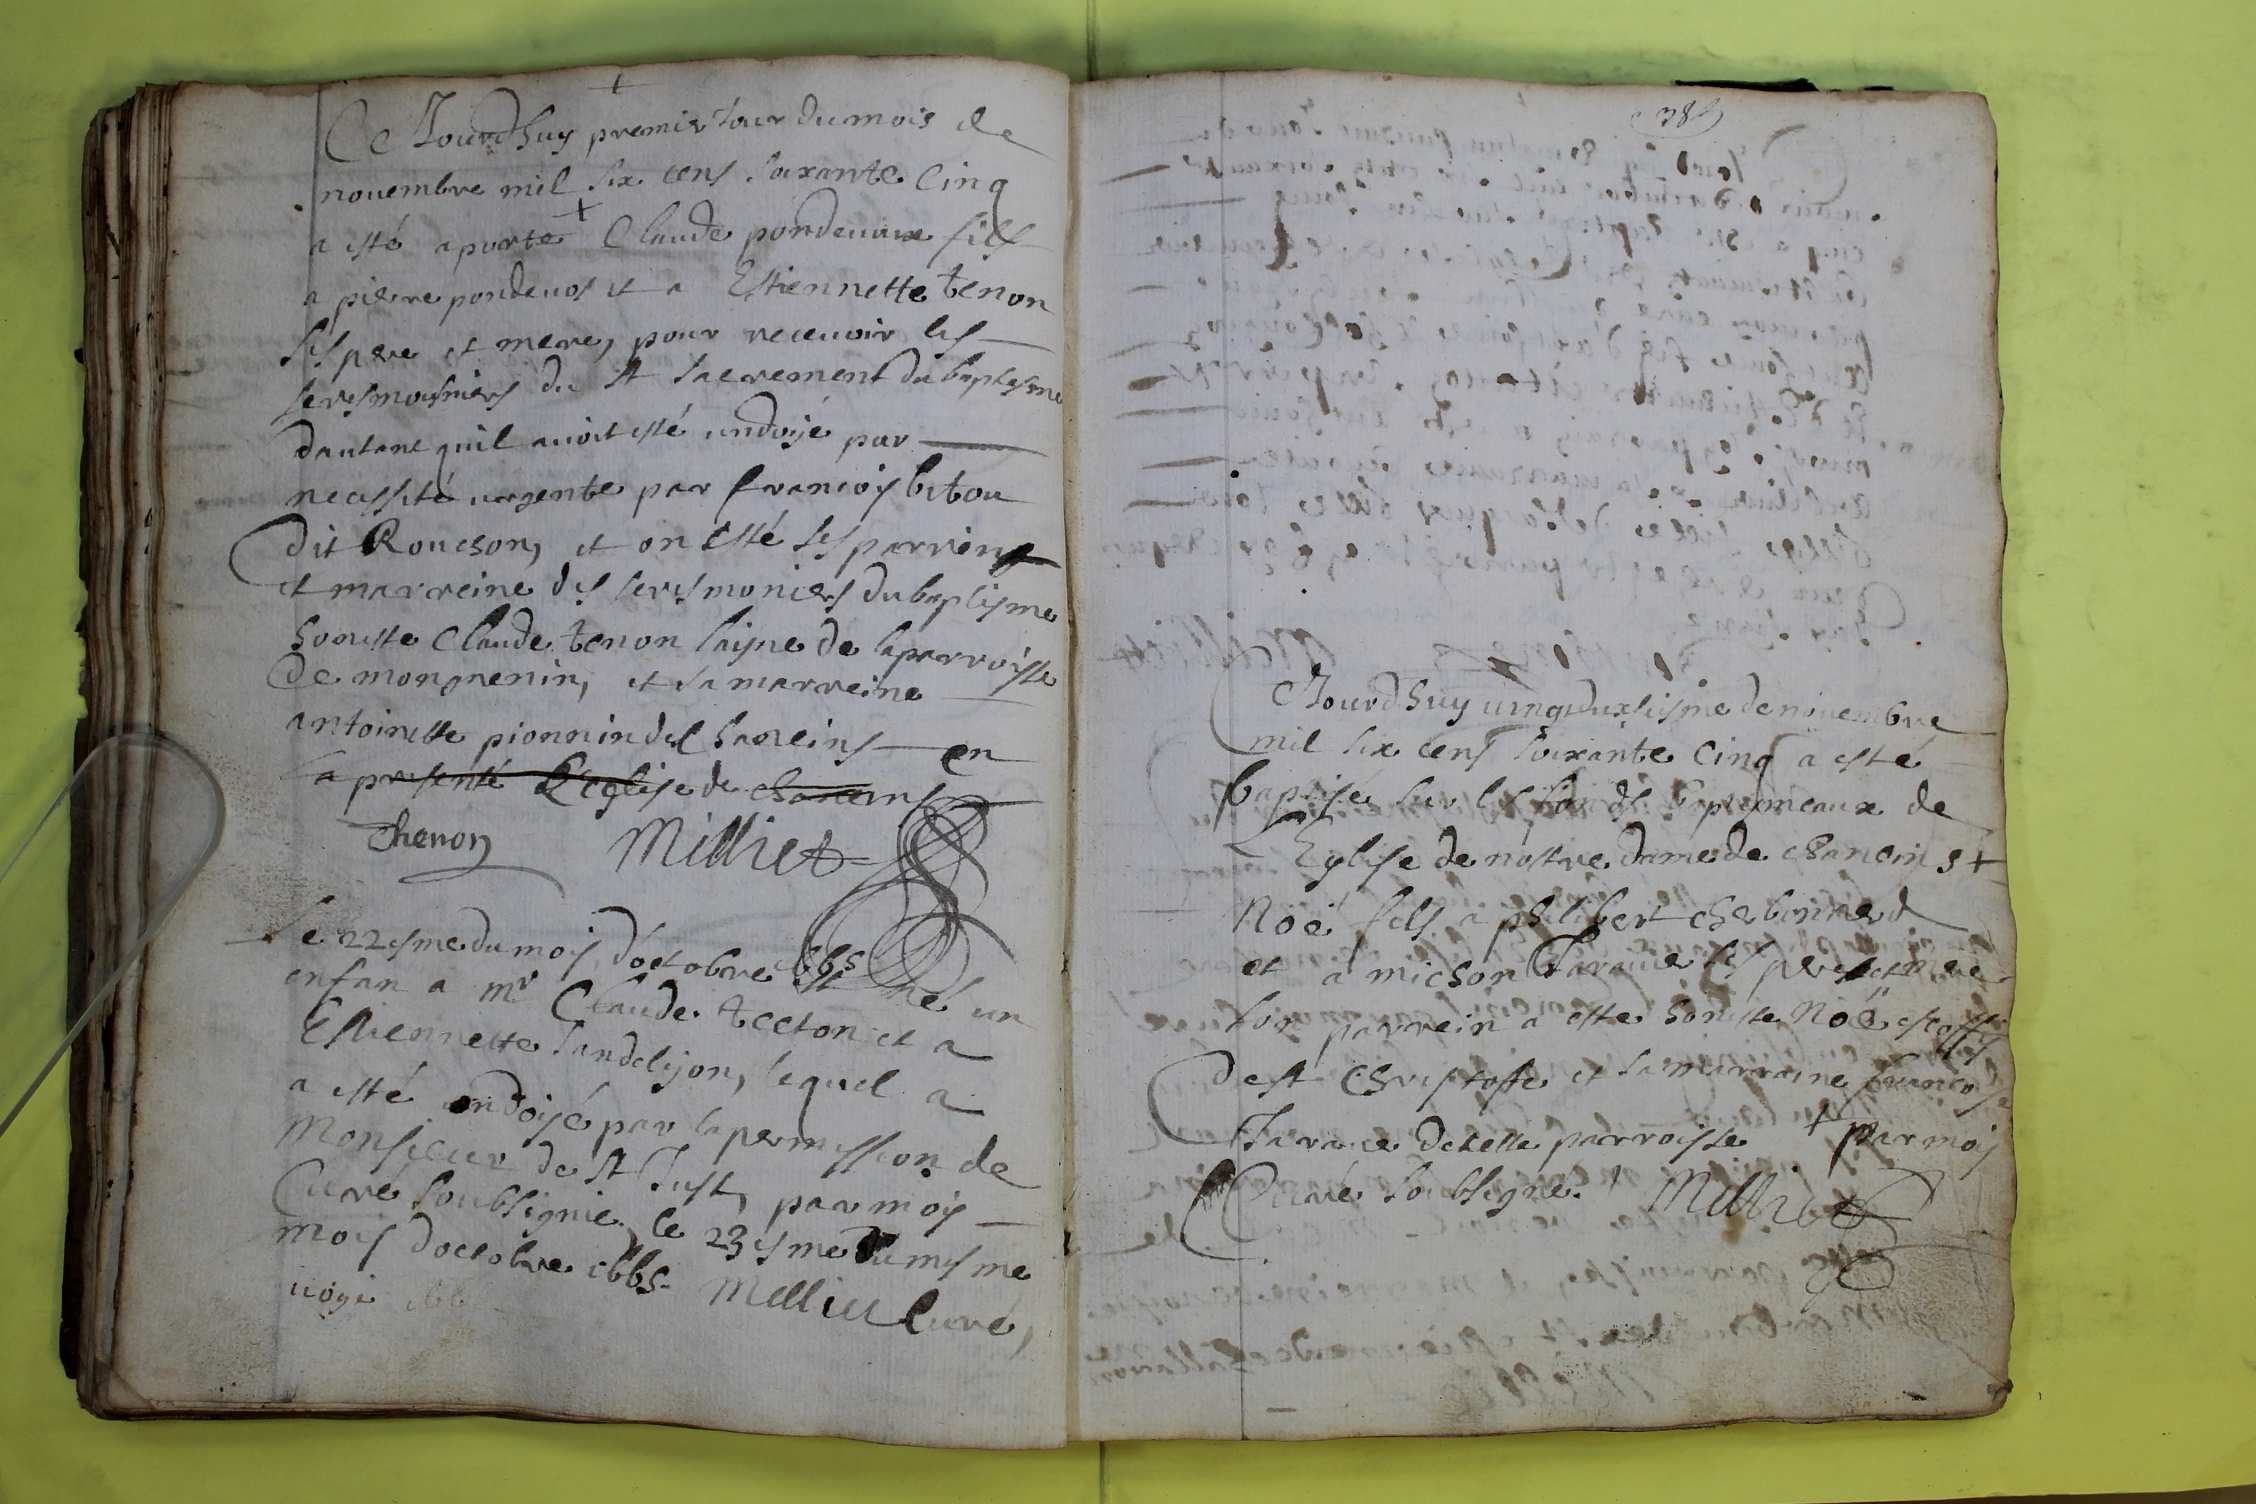 Ce Jourdhuy premier Jour du mois de
novembre mil six cens soixante Cinq
a esté aporte Claude pondevaux fils
a pierre pondevos et a Estiennette tenon
ses pere et mere, pour recevoir les
seresmosniers du st sacrement du baptesme
dautant quil avoit esté undoyé par
necessité urgente par francois bitou
dit Rouchon, et on esté ses parrins
et marreine des seresmoniers du baptisme
honeste Claude tenon laisne de la parroisse
de mongnenin, et sa marreine
antoinette pionnin del haneins en
la presente Leglise de chaneins
Thenon Milliet
Le 22esme du mois d'octobre 1665 est né un
enfan a mr Claude tecton et a
Estiennette sandelyon, lequel a
a esté ondoisé par la permission de
Monsieur de st Just, par moy
Curé soubsignie, le 23esme du mesme
mois doctobre 1665. Milliet Curé,
38
Ce Jourdhuy vingtduxsiesme de novembre
mil six cens soixante Cinq a esté
baptisé sur les fon ds baptismeaux de
L'Eglise de nostre dame de chaneins +
Noé fils a philibert cherbonnerd
et a michon Tarauve ses pere et mere
son parrein a este honeste Noë escoffi
dest Christoffe et sa marraine francoise
Tarauve detelle parroisse + par moy
Curé soubsigne. Milliet